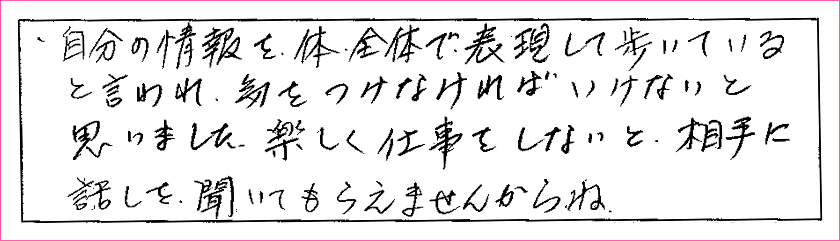 ・自分の情報を、体全体で表現して歩いている
と言われ、気をつけなければいけないと
思いました。楽しく仕事をしないと、相手に
話しを、聞いてもらえませんからね。